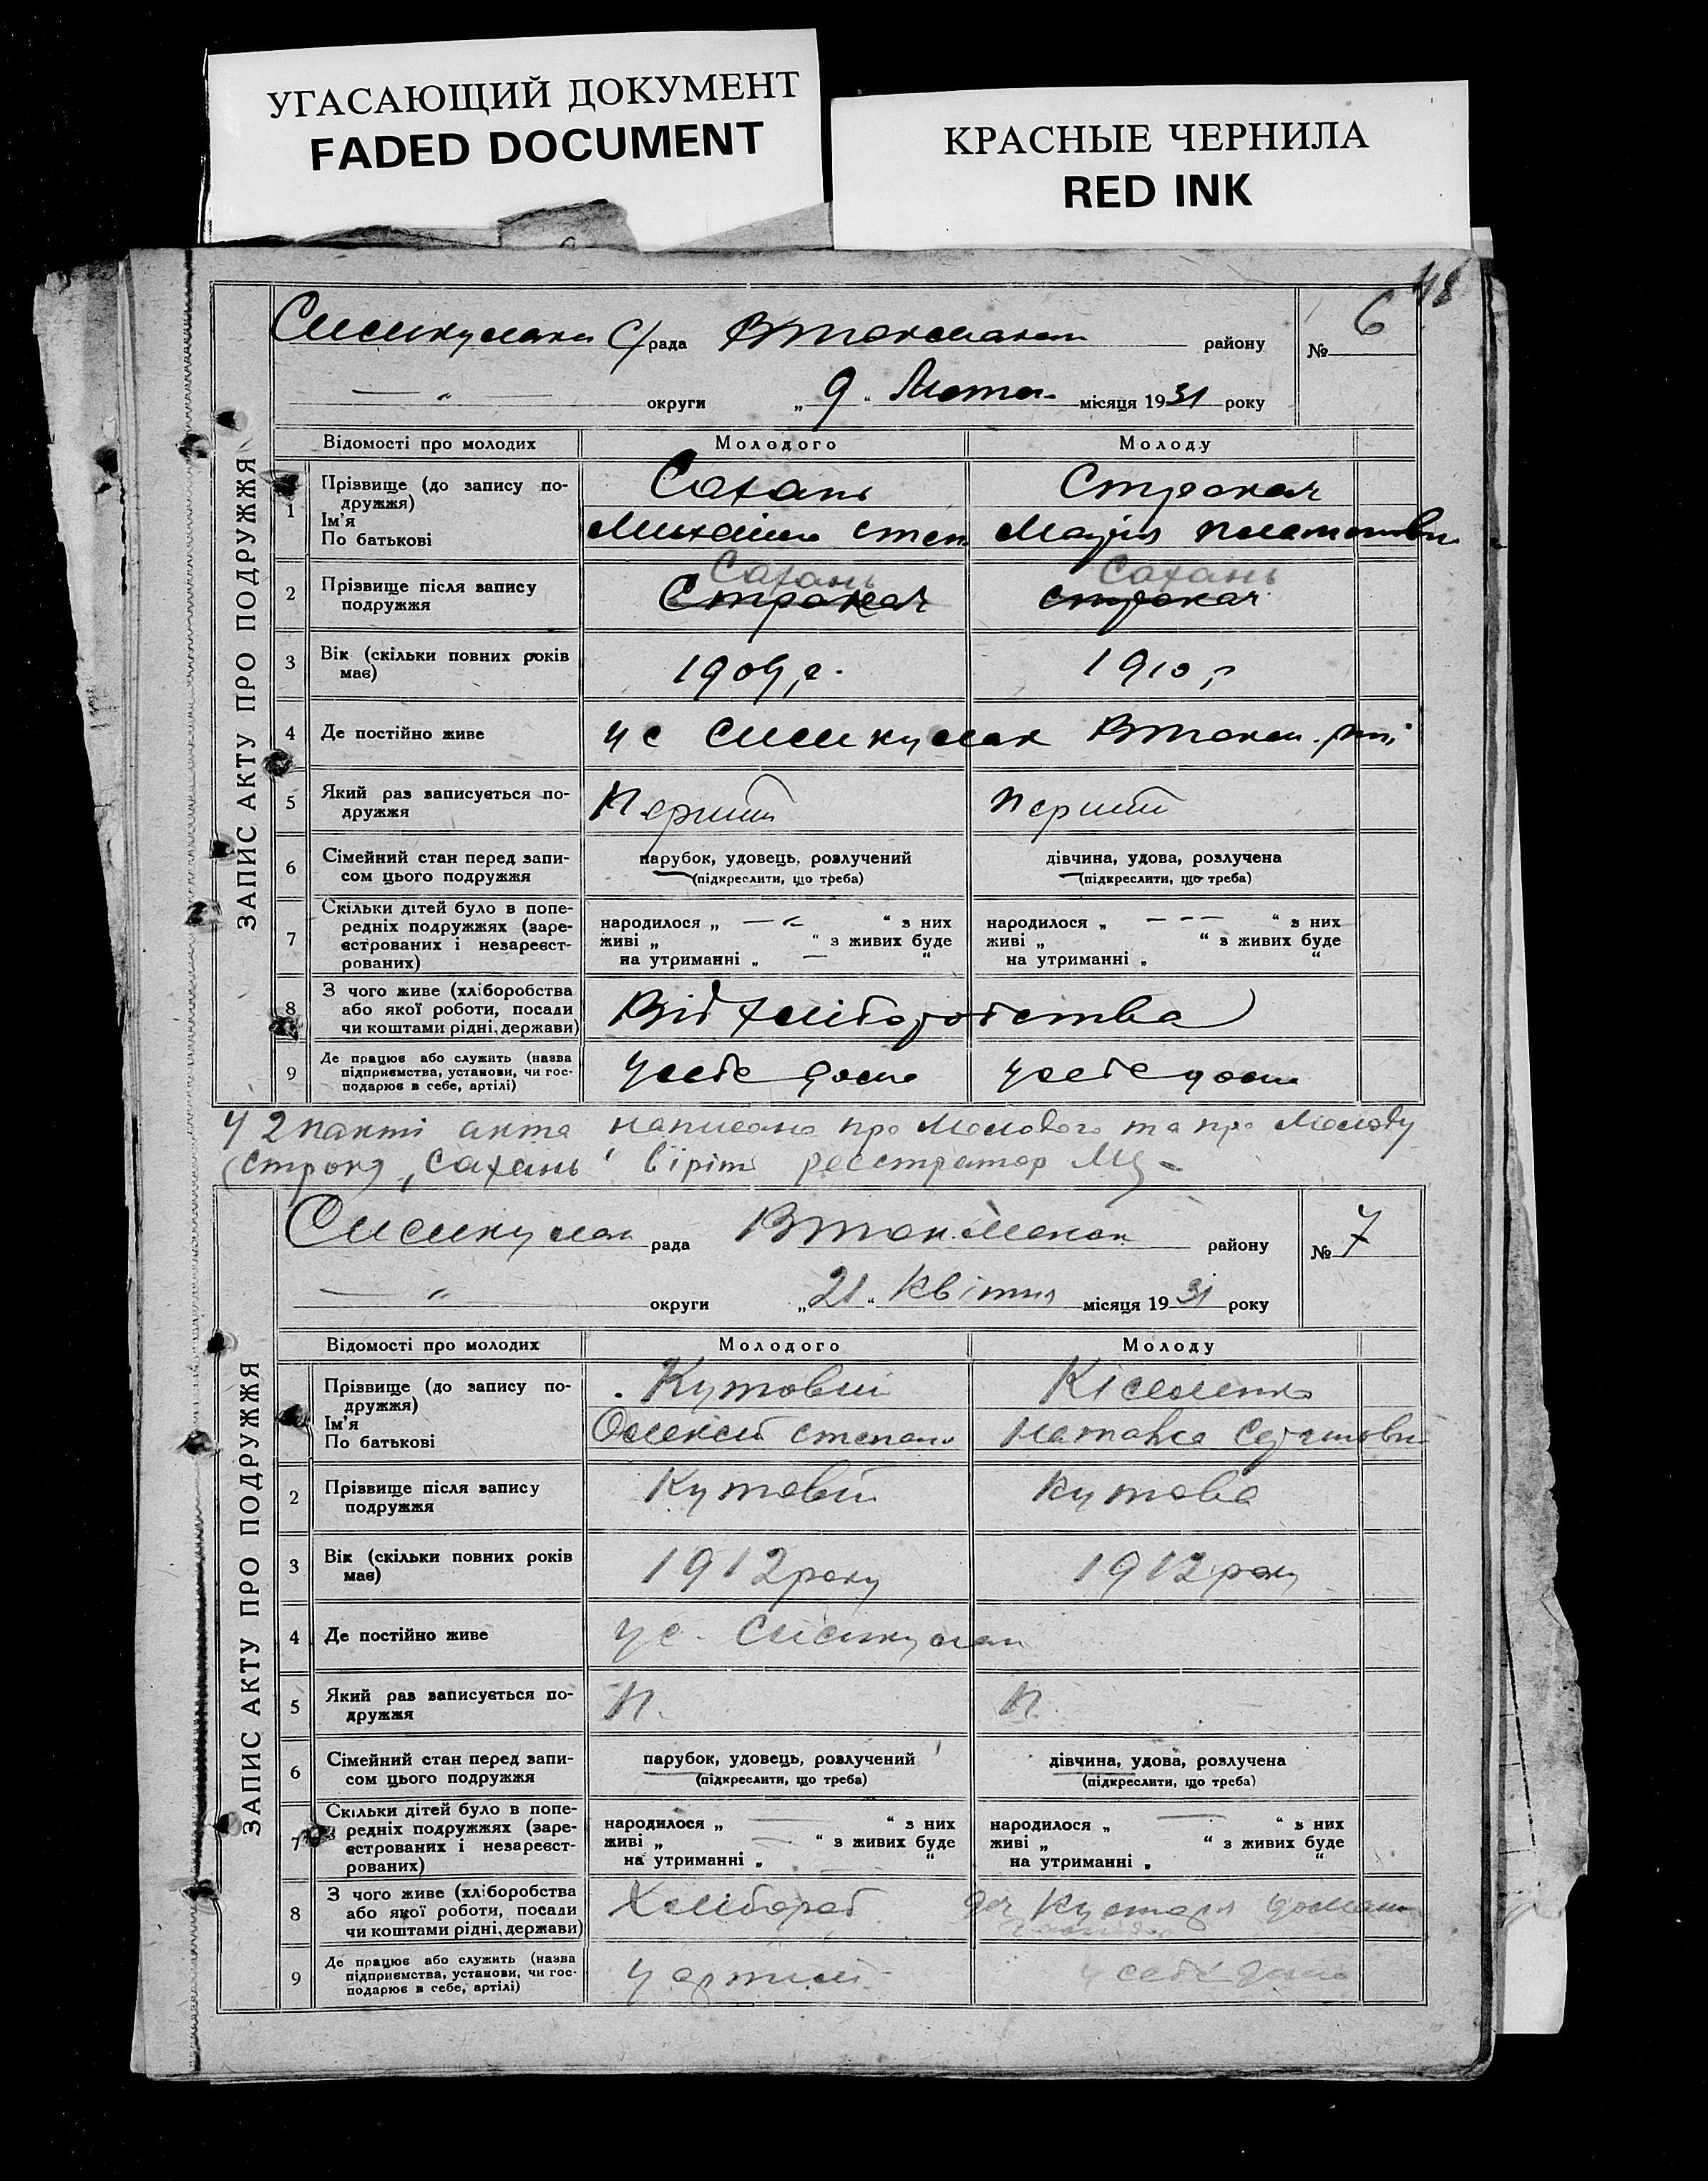 УГАСАЮЩИЙ ДОКУМЕНТ
FADED DOCUMENT
КРАСНЫЕ ЧЕРНИЛА
RED INK
48
ЗАПИС АКТУ ПРО ПОДРУЖЖЯ
С/рада району № 6
— „ — округи „ 9 “ Лютого місяця 1931 року
Відомості про молодих Молодого Молоду
1 Прізвище (до запису по- Сахань Строкач
дружжя)
Ім'я Михайло Степ Марія
По батькові
Сахань Сахань
2 Прізвище після запису Строкач Строкач
подружжя
3 Вік (скільки повних років 1909 г. 1910 г
має)
4 Де постійно живе у с
5 Який раз записується по- Перший Перший
дружжя
6 Сімейний стан перед запи- парубок, удовець, розлучений дівчина, удова, розлучена
сом цього подружжя (підкреслити, що треба) (підкреслити, що треба)
7 Скільки дітей було в попе-
редніх подружжях (заре- народилося „ — “ — “ з них народилося „ — — — “ з них
єстрованих і незареєст- живі „ “ з живих буде живі „ “ з живих буде
рованих) на утриманні „ — “ на утриманні „ “
8 З чого живе (хліборобства
або якої роботи, посади Від хліборобства
чи коштами рідні, держави)
9 Де працює або служить (назва
підприємства, установи, чи гос- у себе дома у себе дома
подарює в себе, артілі)
у 2 пакті акта написано про Молодого та про Молоду
„Сахань“ вірити реєстратор
ЗАПИС АКТУ ПРО ПОДРУЖЖЯ
рада району № 7
— „ округи „ 21 “ Квітня місяця 1931 року
Відомості про молодих Молодого Молоду
Прізвище (до запису по- Кутовій
дружжя)
Ім'я Олексій Степан
По батькові
2 Прізвище після запису Кутовій Кутова
подружжя
3 Вік (скільки повних років 1912 року 1912 року
має)
4 Де постійно живе у с.
5 Який раз записується по- П. П.
дружжя
6 Сімейний стан перед запи- парубок, удовець, розлучений дівчина, удова, розлучена
сом цього подружжя (підкреслити, що треба) (підкреслити, що треба)
7 Скільки дітей було в попе-
редніх подружжях (заре- народилося „ — “ з них народилося „ — “ з них
єстрованих і незареєст- живі „ — “ з живих буде живі „ “ з живих буде
рованих) на утриманні „ “ на утриманні „ “
8 З чого живе (хліборобства
або якої роботи, посади Хлібороб
чи коштами рідні, держави)
9 Де працює або служить (назва
підприємства, установи, чи гос- у артілі у себе дома
подарює в себе, артілі)